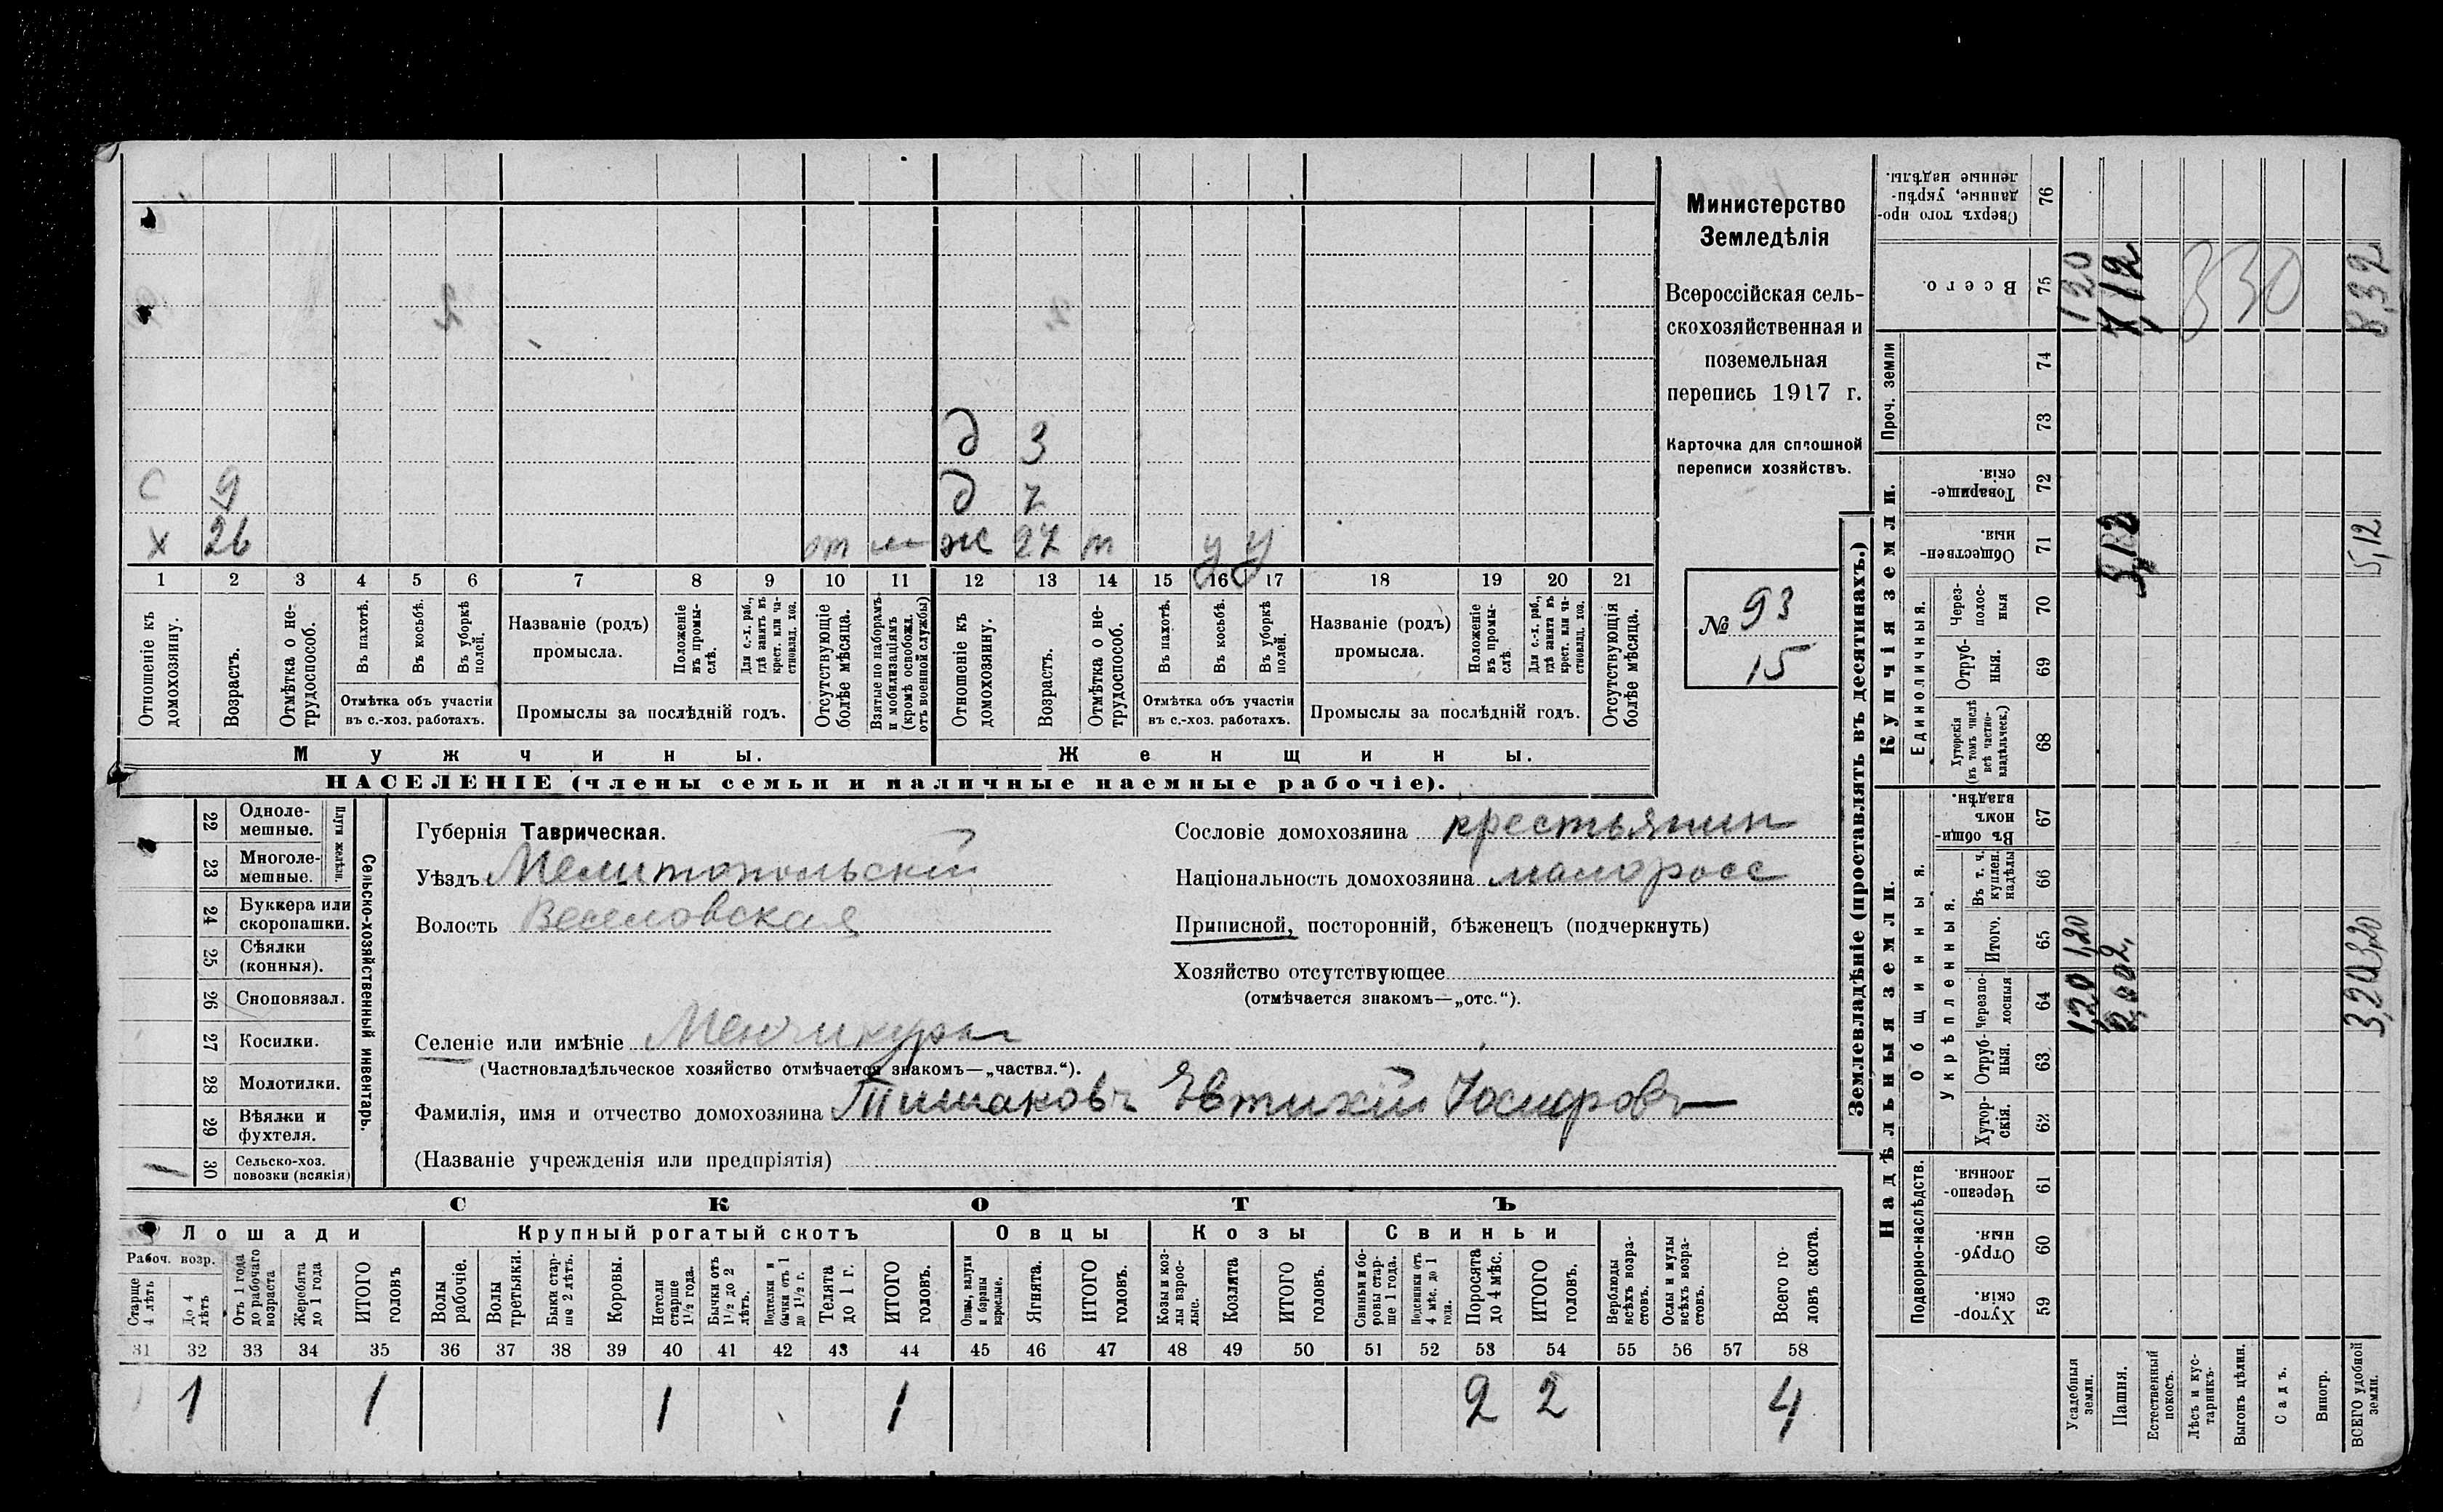 Министерство
Земледѣлія
Всероссійская сель-
скохозяйственная и
поземельная
перепись 1917 г.
Карточка для сплошной
переписи хозяйствъ.
№ 93
15
д 3
с 9 д 7
х 26 от ж 27 т у у
1 2 3 4 5 6 7 8 9 10 11 12 13 14 15 16 17 18 19 20 21
Отношеніе къ домохозяину.
Возрастъ.
Отмѣтка о не-трудоспособ.
Въ пахотѣ.
Въ косьбѣ.
Въ уборкѣ полей.
Отмѣтка объ участіи
въ с.-хоз. работахъ.
Названіе (родъ)
промысла.
Положеніе въ промы-слѣ.
Для с.-х. раб., гдѣ занятъ въ крест. или ча-стновлад. хоз.
Промыслы за послѣдній годъ.
Отсутствующіе болѣе мѣсяца.
Взятые по наборамъ и мобилизаціямъ (кромѣ освобожд. отъ военной службы)
Отношеніе къ домохозяину.
Возрастъ.
Отмѣтка о не-трудоспособ.
Въ пахотѣ.
Въ косьбѣ.
Въ уборкѣ полей.
Отмѣтка объ участіи
въ с.-хоз. работахъ.
Названіе (родъ)
промысла.
Положеніе въ промы-слѣ.
Для с.-х. раб., гдѣ занята въ крест. или ча-стновлад. хоз.
Промыслы за послѣдній годъ.
Отсутствующія болѣе мѣсяца.
Мужчины.
Женщины.
НАСЕЛЕНІЕ (члены семьи и наличные наемные рабочіе).
Сельско-хозяйственный инвентарь.
Плуги желѣзн.
22 Одноле-мешные.
23 Многоле-мешные.
24 Буккера или скоропашки.
25 Сѣялки (конныя).
26 Сноповязал.
27 Косилки.
28 Молотилки.
29 Вѣялки и фухтеля.
30 Сельско-хоз. повозки (всякія)
1
Губернія Таврическая.
Уѣздъ Мелитопольскій
Волость Веселовская
Селеніе или имѣніе Менчикуры
(Частновладѣльческое хозяйство отмѣчается знакомъ—„частвл.“).
Сословіе домохозяина крестьянин
Національность домохозяина малоросс
Приписной, посторонній, бѣженецъ (подчеркнуть)
Хозяйство отсутствующее
(отмѣчается знакомъ—„отс.“).
Фамилія, имя и отчество домохозяина Тишаковъ Евтихій Іосифовъ
(Названіе учрежденія или предпріятія)
СКОТЪ
Лошади
Крупный рогатый скотъ
Овцы
Козы
Свиньи
Рабоч. возр.
Старше 4 лѣтъ
До 4 лѣтъ
Отъ 1 года до рабочаго возраста
Жеребята до 1 года
ИТОГО головъ
Волы рабочіе.
Волы третьяки.
Быки стар-ше 2 лѣтъ.
Коровы.
Нетели старше 1½ года.
Бычки отъ 1½ до 2 лѣтъ.
Подтелки и бычки отъ 1 до 1½ г.
Телята до 1 г.
ИТОГО головъ.
Овцы, валухи и бараны взрослые.
Ягнята.
ИТОГО головъ.
Козы и коз-лы взрос-лые.
Козлята
ИТОГО головъ.
Свиньи и бо-ровы стар-ше 1 года.
Подсвинки отъ 4 мѣс. до 1 года.
Поросята до 4 мѣс.
ИТОГО головъ.
Верблюды всѣхъ возра-стовъ.
Ослы и мулы всѣхъ возра-стовъ.
Всего го-ловъ скота.
31 32 33 34 35 36 37 38 39 40 41 42 43 44 45 46 47 48 49 50 51 52 53 54 55 56 57 58
1 1 1 1 2 2 4
Землевладѣніе (проставлять въ десятинахъ.)
Надѣльныя земли.
Купчія земли.
Проч. земли
Подворно-наслѣдств.
Общинныя.
Укрѣпленныя.
Единоличныя.
Сверхъ того про-данные, укрѣп-ленные надѣлы. 76
Всего. 75
74
73
Товарище-скія. 72
Обществен-ныя. 71
Через-полос-ныя 70
Отруб-ныя. 69
Хуторскія (въ томъ числѣ всѣ частно-владѣльческ.) 68
Въ общин-номъ владѣн. 67
Въ т. ч. куплен. надѣлы 66
Итого. 65
Черезпо-лосныя 64
Отруб-ныя. 63
Хутор-скія. 62
Черезпо-лосныя. 61
Отруб-ныя. 60
Хутор-скія. 59
Усадебныя земли.
Пашня.
Естественный покосъ.
Лѣсъ и кус-тарникъ.
Выгонъ цѣлин.
Садъ.
Виногр.
ВСЕГО удобной земли.
120
7,12
330
8,32
5,12
5,12
1,20 1,20
3,20 3,20